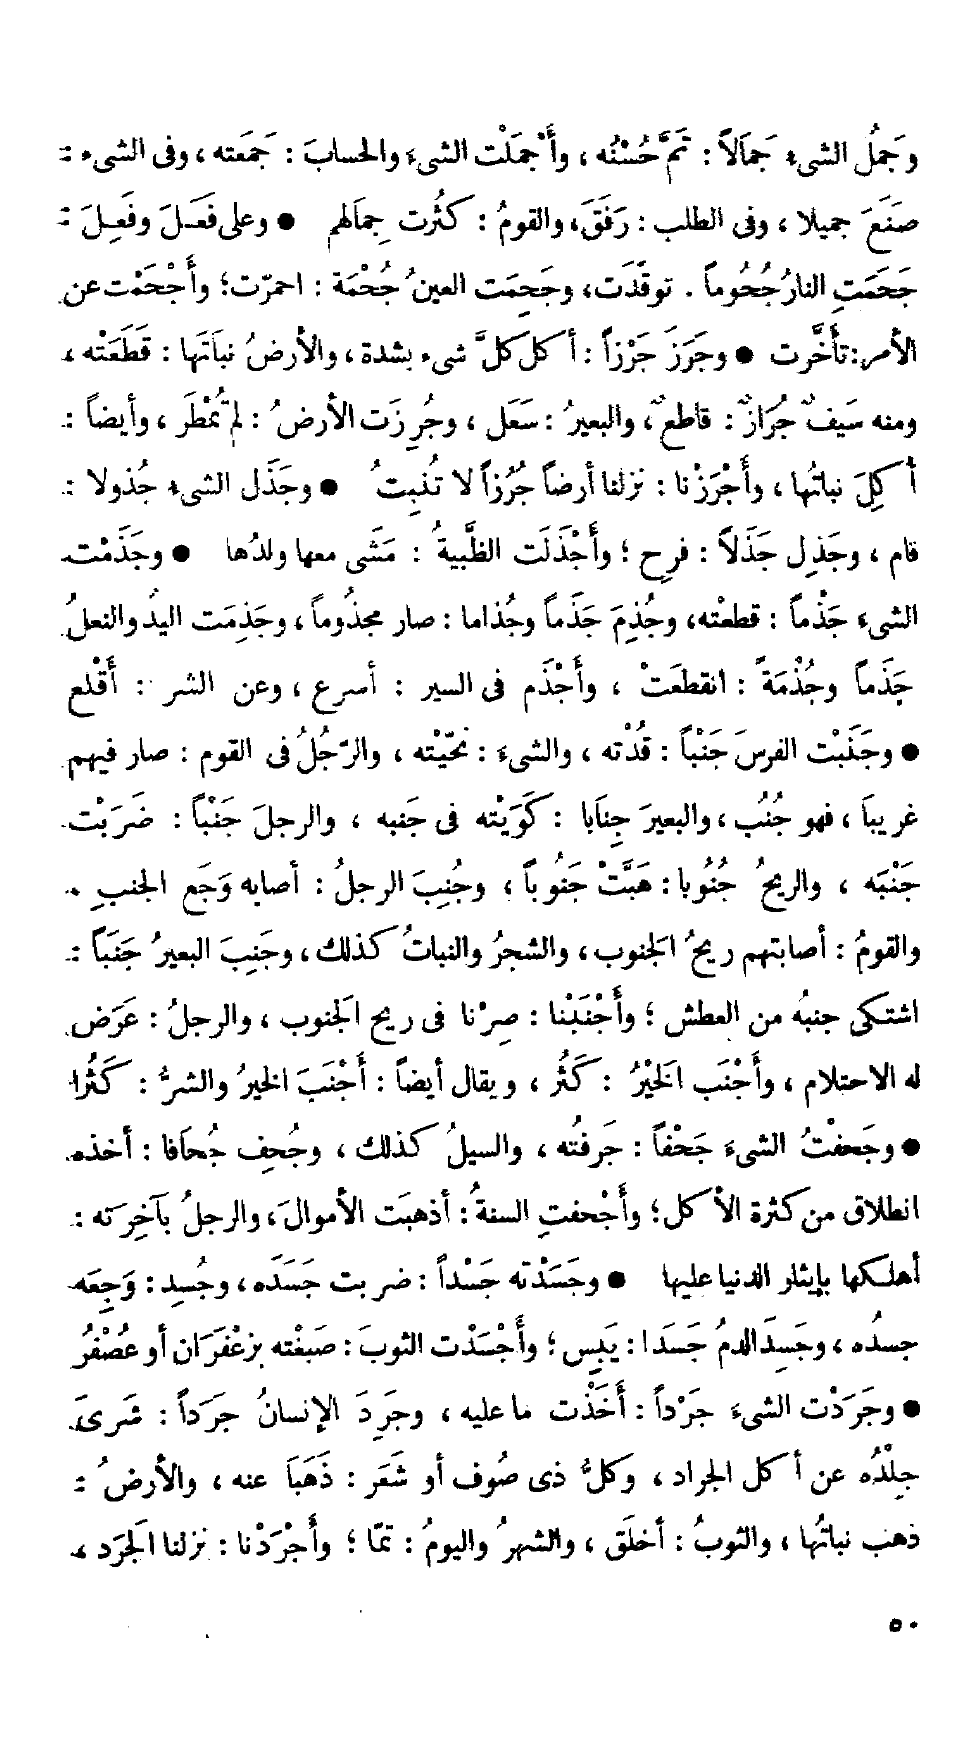 وجَمُل الشيءُ جَمَالاً : تَمَّ حُسْنُه ، وأَجْمَلْت الشيءَ والحسابَ : جَمَعته ، وفى الشيء :
صَنَعَ جميلا ، وفى الطلب : رَفَقَ ، والقومُ : كَثُرت جِمالهم ● وعلى فَعَلَ وفَعِلَ :
جَحَمَتِ النارُ جُحُوماً . توقّدَت ، وجَحِمَت العينُ جُحْمَة : احمرّت ؛ وأَجْحَمْت عن
الأمر : تأَخَّرت ● وجَرَزَ جَرْزاً : أكل كلَّ شىء بشدة ، والأرضُ نباتَها : قَطَعَتْه ،
ومنه سَيفٌ جُرَازٌ : قاطعٌ ، والبعيرُ : سَعَل ، وجُرِزَت الأرضُ : لم تُمْطَر ، وأيضاً :
أُكِلَ نباتُها ، وأَجْرَزْنا : نزلنا أرضاً جُرُزاً لا تُنبِتُ ● وجَذَل الشىءُ جُذولا :
قام ، وجَذِل جَذَلاً : فرِح ؛ وأَجْذَلَت الظَّبيةُ : مَشَى معها ولدُها ● وجَذَمْت
الشىءَ جَذْماً : قطعْته ، وجُذِمَ جَذَماً وجُذاما : صار مجذُوماً ، وجَذِمَت اليدُ والنعلُ
جَذَماً وجُذْمَةً : انقطعَتْ ، وأَجْذَم فى السير : أسرع ، وعن الشر : أَقْلع
● وجَنَبْت الفرسَ جَنْباً : قُدْته ، والشىءَ : نحّيْته ، والرّجُلُ فى القوم : صار فيهم
غريباً ، فهو جُنُب ، والبعيرَ جِنَابا : كَوَيْته فى جَنبه ، والرجلَ جَنْباً : ضَرَبْت
جَنْبَه ، والريحُ جُنُوبا : هَبَّتْ جَنُوباً ، وجُنِبَ الرجلُ : أصابه وَجَع الجنبِ .
والقومُ : أصابتهم ريحُ الجَنوب ، والشجرُ والنباتُ كذلك ، وجَنِبَ البعيرُ جَنَباً :
اشتكى جنبُه من العطش ؛ وأَجْنَبْنا : صِرْنا فى ريح الجَنوب ، والرجلُ : عَرَض
له الاحتلام ، وأَجْنَب الخَيْرُ : كَثُر ، ويقال أيضاً : أَجْنَبَ الخيرُ والشرُّ : كَثُرا
● وجَحفْتُ الشىءَ جَحْفاً : جَرفتُه ، والسيلُ كذلك ، وجُحِف جُحافا : أخذه
انطلاق من كثرة الأكل ؛ وأَجْحفتِ السنةُ : أذهبَت الأموالَ ، والرجلُ بآخِرته :
أهلكها بإيثار الدنيا عليها ● وجَسَدْته جَسْداً : ضربت جَسَدَه ، وجُسِد : وَجِعَه
جسدُه ، وجَسِدَ الدمُ جَسَدا : يَبِس ؛ وأَجْسَدْت الثوبَ : صَبغْته بزَعْفَرَان أو عُصْفُر
● وجَرَدْت الشىءَ جَرْداً : أَخَذْت ما عليه ، وجَرِدَ الإنسانُ جَرَداً : شَرِىَ
جلْدُه عن أكل الجراد ، وكلُّ ذى صُوف أو شَعَر : ذَهَبَا عنه ، والأرضُ :
ذهب نباتُها ، والثوبُ : أخلَق ، والشهرُ واليومُ : تمّا ؛ وأَجْرَدْنا : نزلنا الجَرَد ،
٥٠